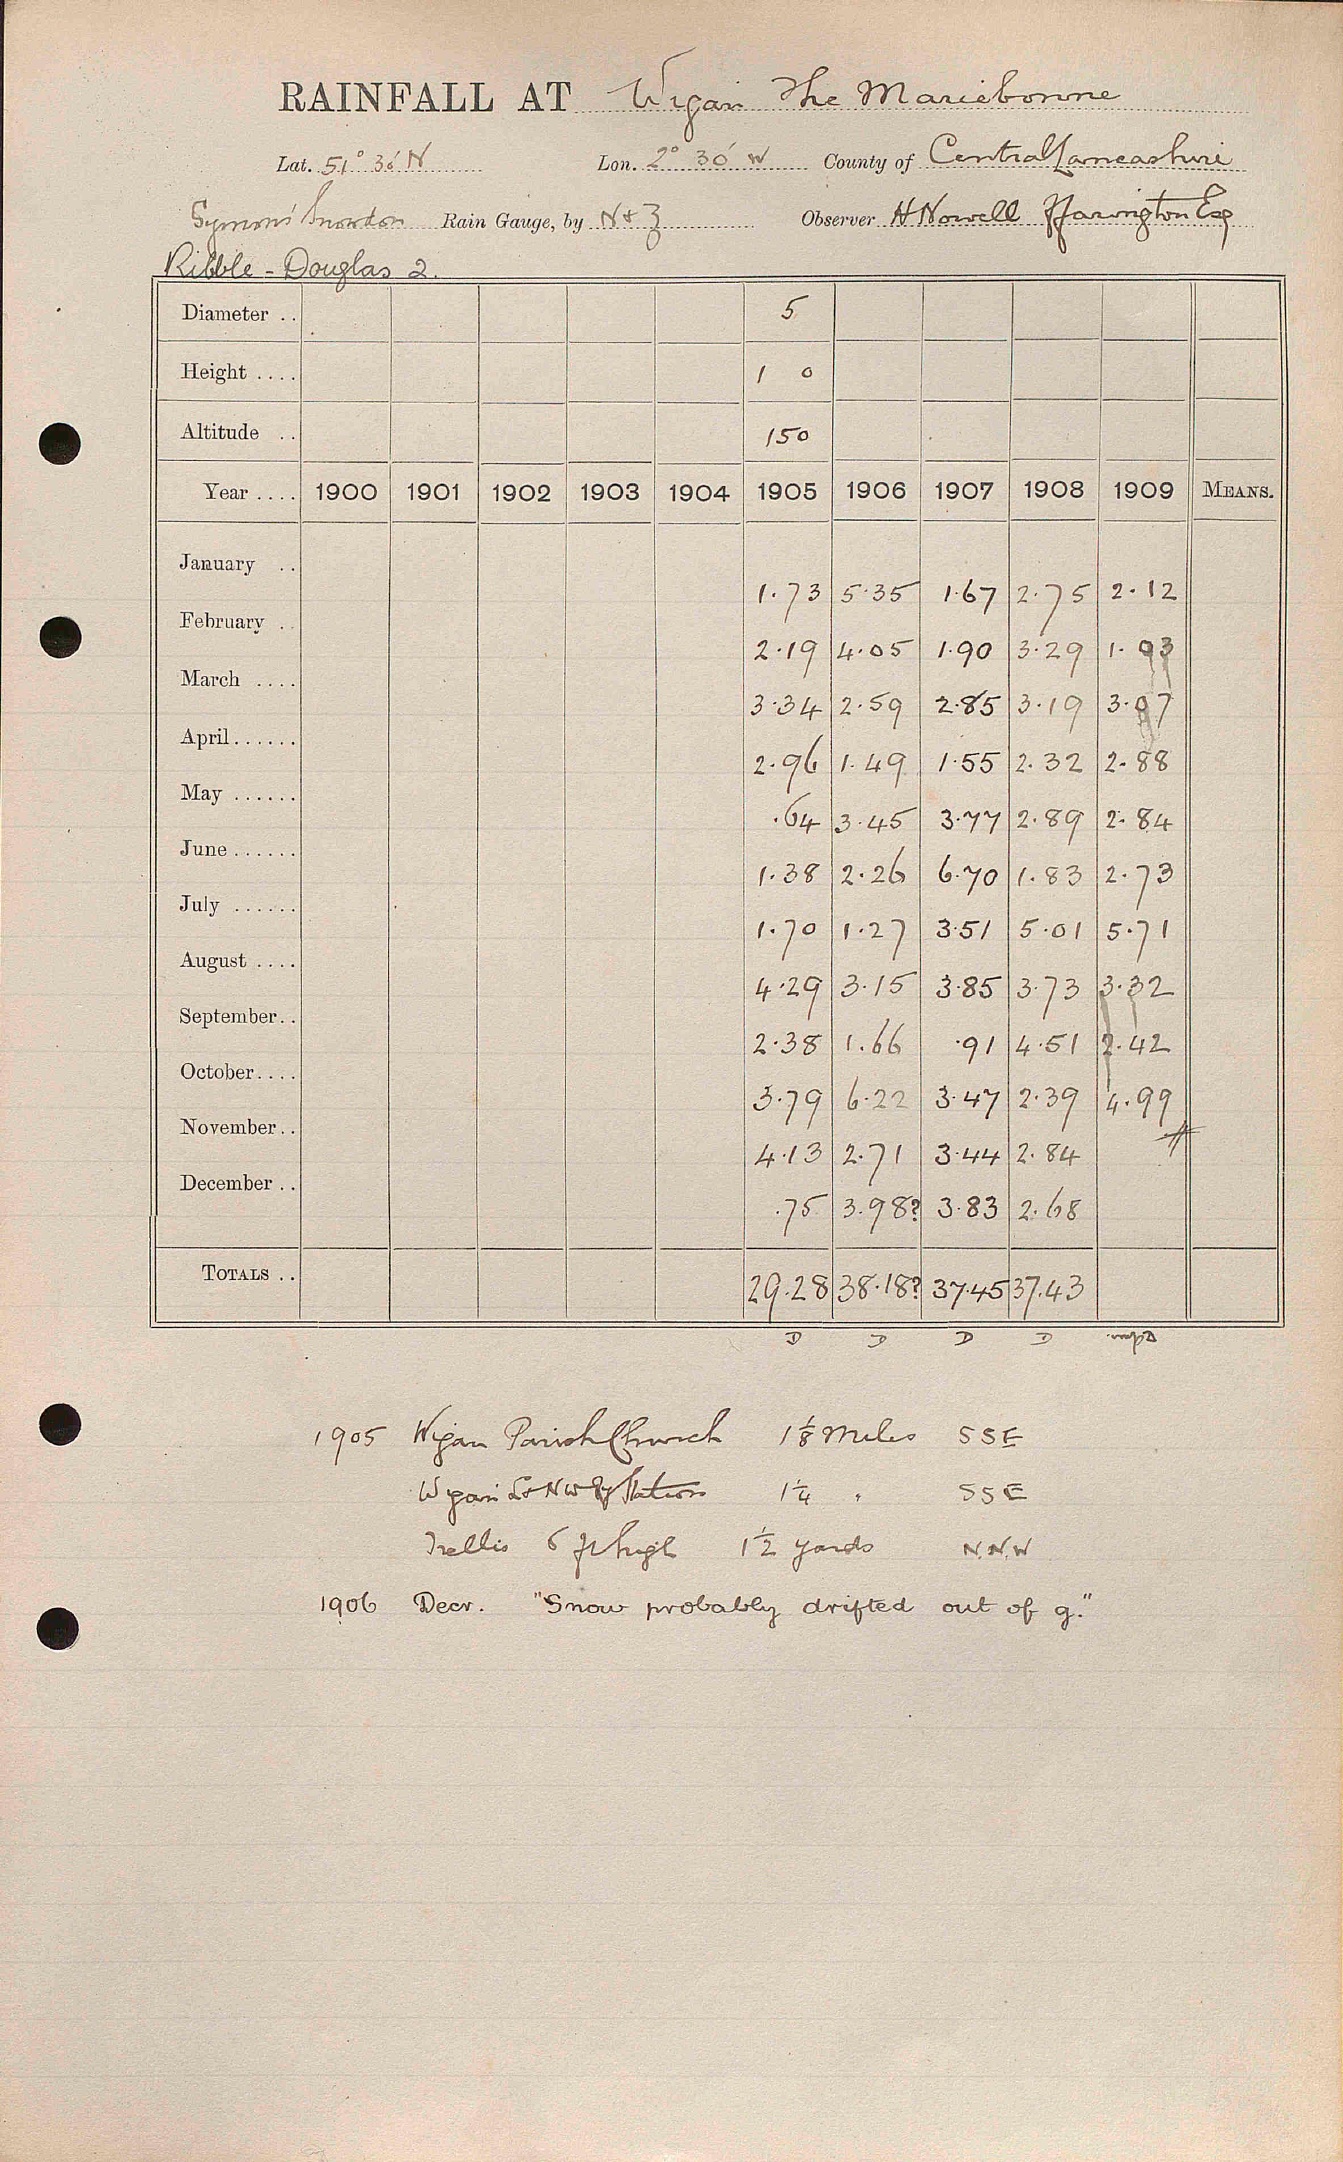 RAINFALL AT Wigan The Mariebonne
Lat. 51° 36' N Lon. 2° 36' W County of Central Lancashire
Symons' Snowdon Rain Gauge, by N & Z Observer H Nowell ffarington Esq
Ribble - Douglas 2.
Diameter .. 5
Height .... 1 0
Altitude .. 150
Year .... 1900 1901 1902 1903 1904 1905 1906 1907 1908 1909 MEANS.
January .. 1.73 5.35 1.67 2.75 2.12
February .. 2.19 4.05 1.90 3.29 1.93
March .... 3.34 2.59 2.85 3.19 3.07
April...... 2.96 1.49 1.55 2.32 2.88
May ...... .64 3.45 3.77 2.89 2.84
June ...... 1.38 2.26 6.70 1.83 2.73
July ...... 1.70 1.27 3.51 5.01 5.71
August .... 4.29 3.15 3.85 3.73 3.32
September.. 2.38 1.66 .91 4.51 2.42
October.... 3.79 6.22 3.47 2.39 4.99
November.. 4.13 2.71 3.44 2.84
December .. .75 3.98? 3.83 2.68
TOTALS .. 29.28 38.18? 37.45 37.43
D D D D
1905 Wigan Parish Church 1 1/8 Miles SSE
Wigan L & NW Ry Station 1 1/4 " SSE
Trellis 6 ft high 1 1/2 yards N.N.W
1906 Decr. "Snow probably drifted out of g."